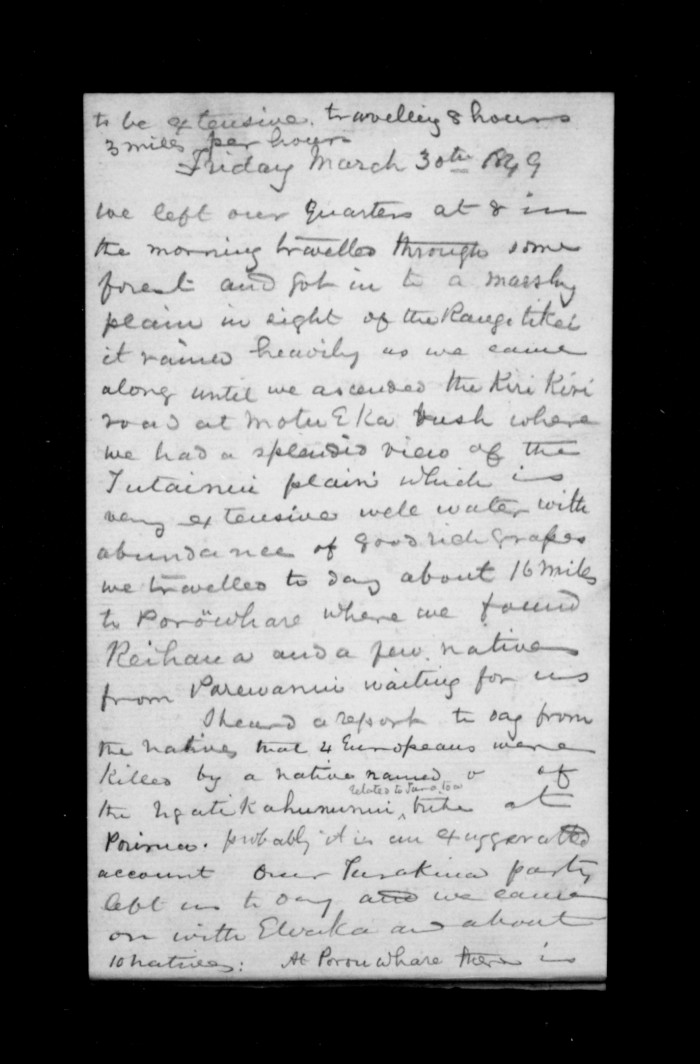 to be extensive. travelling 8 hours
3 miles per hour
Friday March 30th 1849
We left our Quarters at 8 in
the morning travelled through some
forest and got in to a marshy
plain in sight of the Rangitikei
it rained heavily as we came
along until we ascended the Kiri Kiri
road at Motu E Ka bush where
we had a splendid view of the
Tutainui plain which is
very extensive well water with
abundance of good rich Grapes
we travelled to day about 16 miles
to Poröwhare where we found
Reihana and a few natives
from Parewanui waiting for us
I heard a report to day from
the natives that 4 Europeans were
killed by a native named o of
related to
the Ngatikahununui, tribe at
Porirua. probably it is an exaggerated
account Our Turakina party
left us to day and we came
on with and about
10 natives: At Porouwhare there is